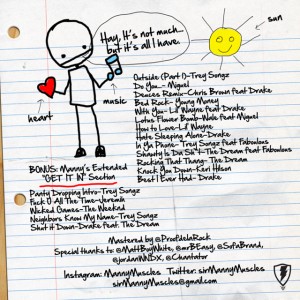 Hay, It's not much...
but it's all I have.
sun
heart
music
Outside (Part 1)-Trey Songz
Do You...- Miguel
Deuces Remix-Chris Brown feat Drake
Bed Rock- Young Money
With You- Lil Wayne feat Drake
Lotus Flower Bomb-Wale feat Miguel
How to Love-Lil Wayne
Hate Sleeping Alone-Drake
In Ya Phone- Trey Songz feat Fabolous
Shawty Is Da Sh*t-The Dream feat Fabolous
Rocking That Thang- The Dream
Knock You Down-Keri Hilson
Best I Ever Had- Drake
BONUS: Manny's Extended
"GET IT IN" Section
Panty Dropping Intro-Trey Songz
Fuck U All The Time-Jeremih
Wicked Games-The Weeknd
Neighbors Know My Name-Trey Songz
Shut it Down-Drake feat. The Dream
Mastered by @ProfileInRock
Special thanks to: @MattBoyWhite, @mrBEasy, @SofiaBrand,
@jordanWNDX, @Chantator
Instagram: MannyMuscles Twitter: sirMannyMuscles
sirMannyMuscles@gmail.com